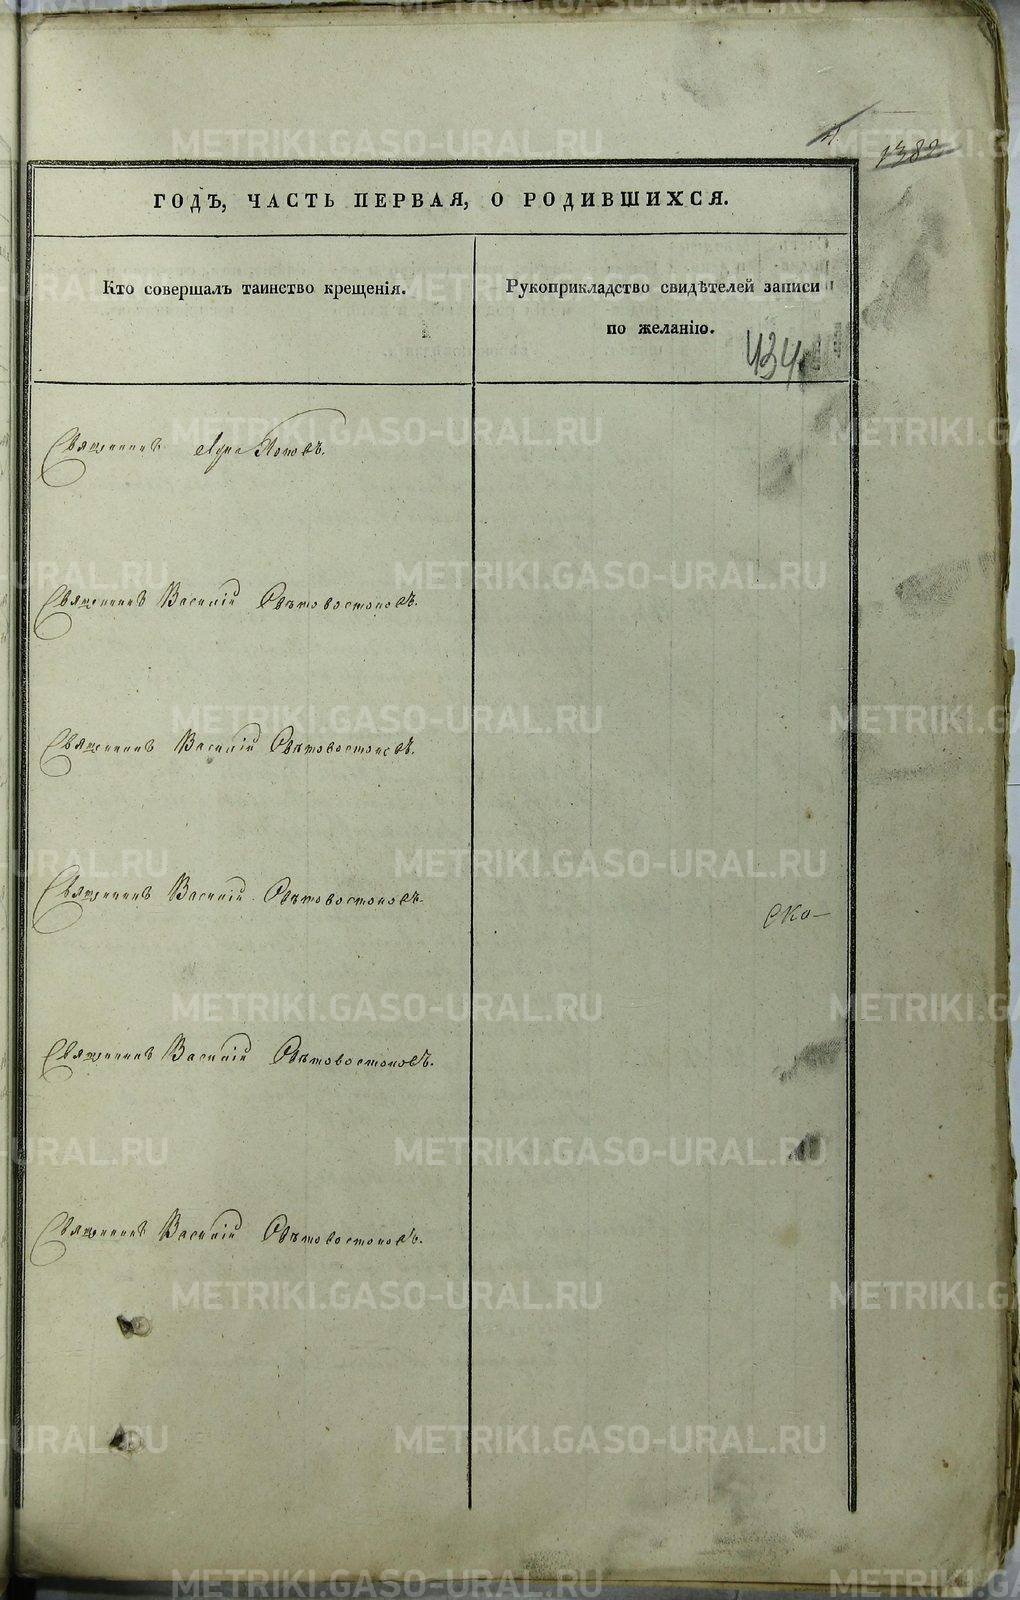 1382
ГОДЪ, ЧАСТЬ ПЕРВАЯ, О РОДИВШИХСЯ.
Кто совершалъ таинство крещенія.
Рукоприкладство свидѣтелей записи
по желанію.
434
Священникъ Поповъ.
Священникъ Василій Свѣтовостоковъ.
Священникъ Василій Свѣтовостоковъ.
Священникъ Василій Свѣтовостоковъ.
Ско-
Священникъ Василій Свѣтовостоковъ.
Священникъ Василій Свѣтовостоковъ.
METRIKI.GASO-URAL.RU